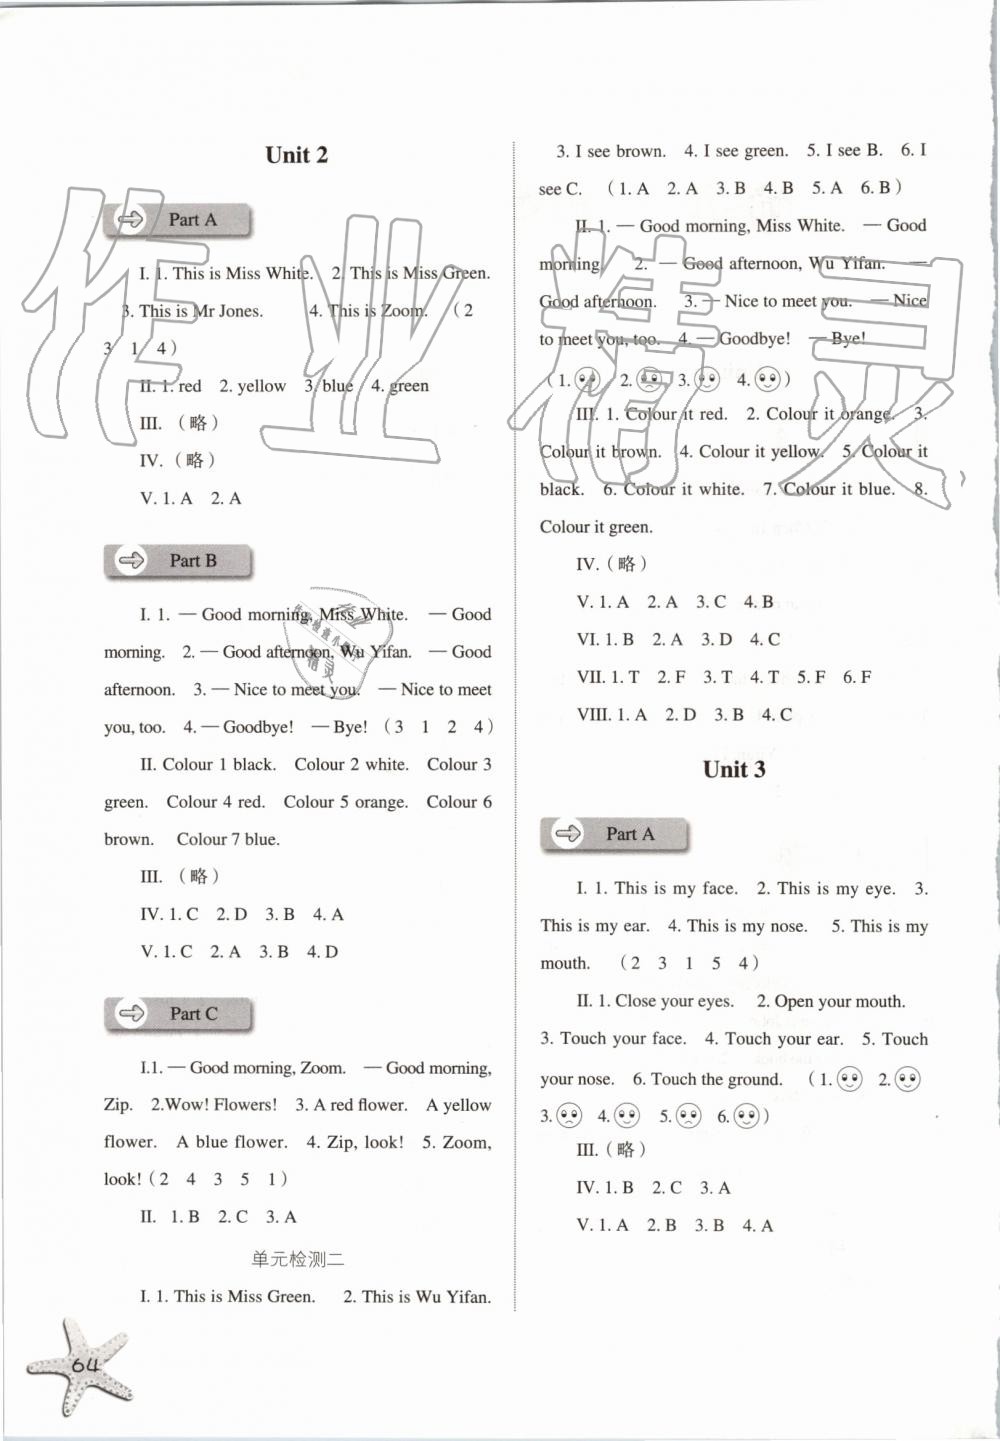 Unit 2
Part A
I. 1. This is Miss White. 2. This is Miss Green.
3. This is Mr Jones. 4. This is Zoom. （2
3 1 4）
II. 1. red 2. yellow 3. blue 4. green
III. （略）
IV. （略）
V. 1. A 2. A
Part B
I. 1. — Good morning, Miss White. — Good
morning. 2. — Good afternoon, Wu Yifan. — Good
afternoon. 3. — Nice to meet you. — Nice to meet
you, too. 4. — Goodbye! — Bye!（3 1 2 4）
II. Colour 1 black. Colour 2 white. Colour 3
green. Colour 4 red. Colour 5 orange. Colour 6
brown. Colour 7 blue.
III. （略）
IV. 1. C 2. D 3. B 4. A
V. 1. C 2. A 3. B 4. D
Part C
I.1. — Good morning, Zoom. — Good morning,
Zip. 2.Wow! Flowers! 3. A red flower. A yellow
flower. A blue flower. 4. Zip, look! 5. Zoom,
look!（2 4 3 5 1）
II. 1. B 2. C 3. A
单元检测二
I. 1. This is Miss Green. 2. This is Wu Yifan.
3. I see brown. 4. I see green. 5. I see B. 6. I
see C. （1. A 2. A 3. B 4. B 5. A 6. B）
II. 1. — Good morning, Miss White. — Good
morning. 2. — Good afternoon, Wu Yifan. —
Good afternoon. 3. — Nice to meet you. — Nice
to meet you, too. 4. — Goodbye! — Bye!
（1. 2. 3. 4. ）
III. 1. Colour it red. 2. Colour it orange. 3.
Colour it brown. 4. Colour it yellow. 5. Colour it
black. 6. Colour it white. 7. Colour it blue. 8.
Colour it green.
IV.（略）
V. 1. A 2. A 3. C 4. B
VI. 1. B 2. A 3. D 4. C
VII. 1. T 2. F 3. T 4. T 5. F 6. F
VIII. 1. A 2. D 3. B 4. C
Unit 3
Part A
I. 1. This is my face. 2. This is my eye. 3.
This is my ear. 4. This is my nose. 5. This is my
mouth. （2 3 1 5 4）
II. 1. Close your eyes. 2. Open your mouth.
3. Touch your face. 4. Touch your ear. 5. Touch
your nose. 6. Touch the ground. （1. 2.
3. 4. 5. 6. ）
III.（略）
IV. 1. B 2. C 3. A
V. 1. A 2. B 3. B 4. A
64
作业精灵